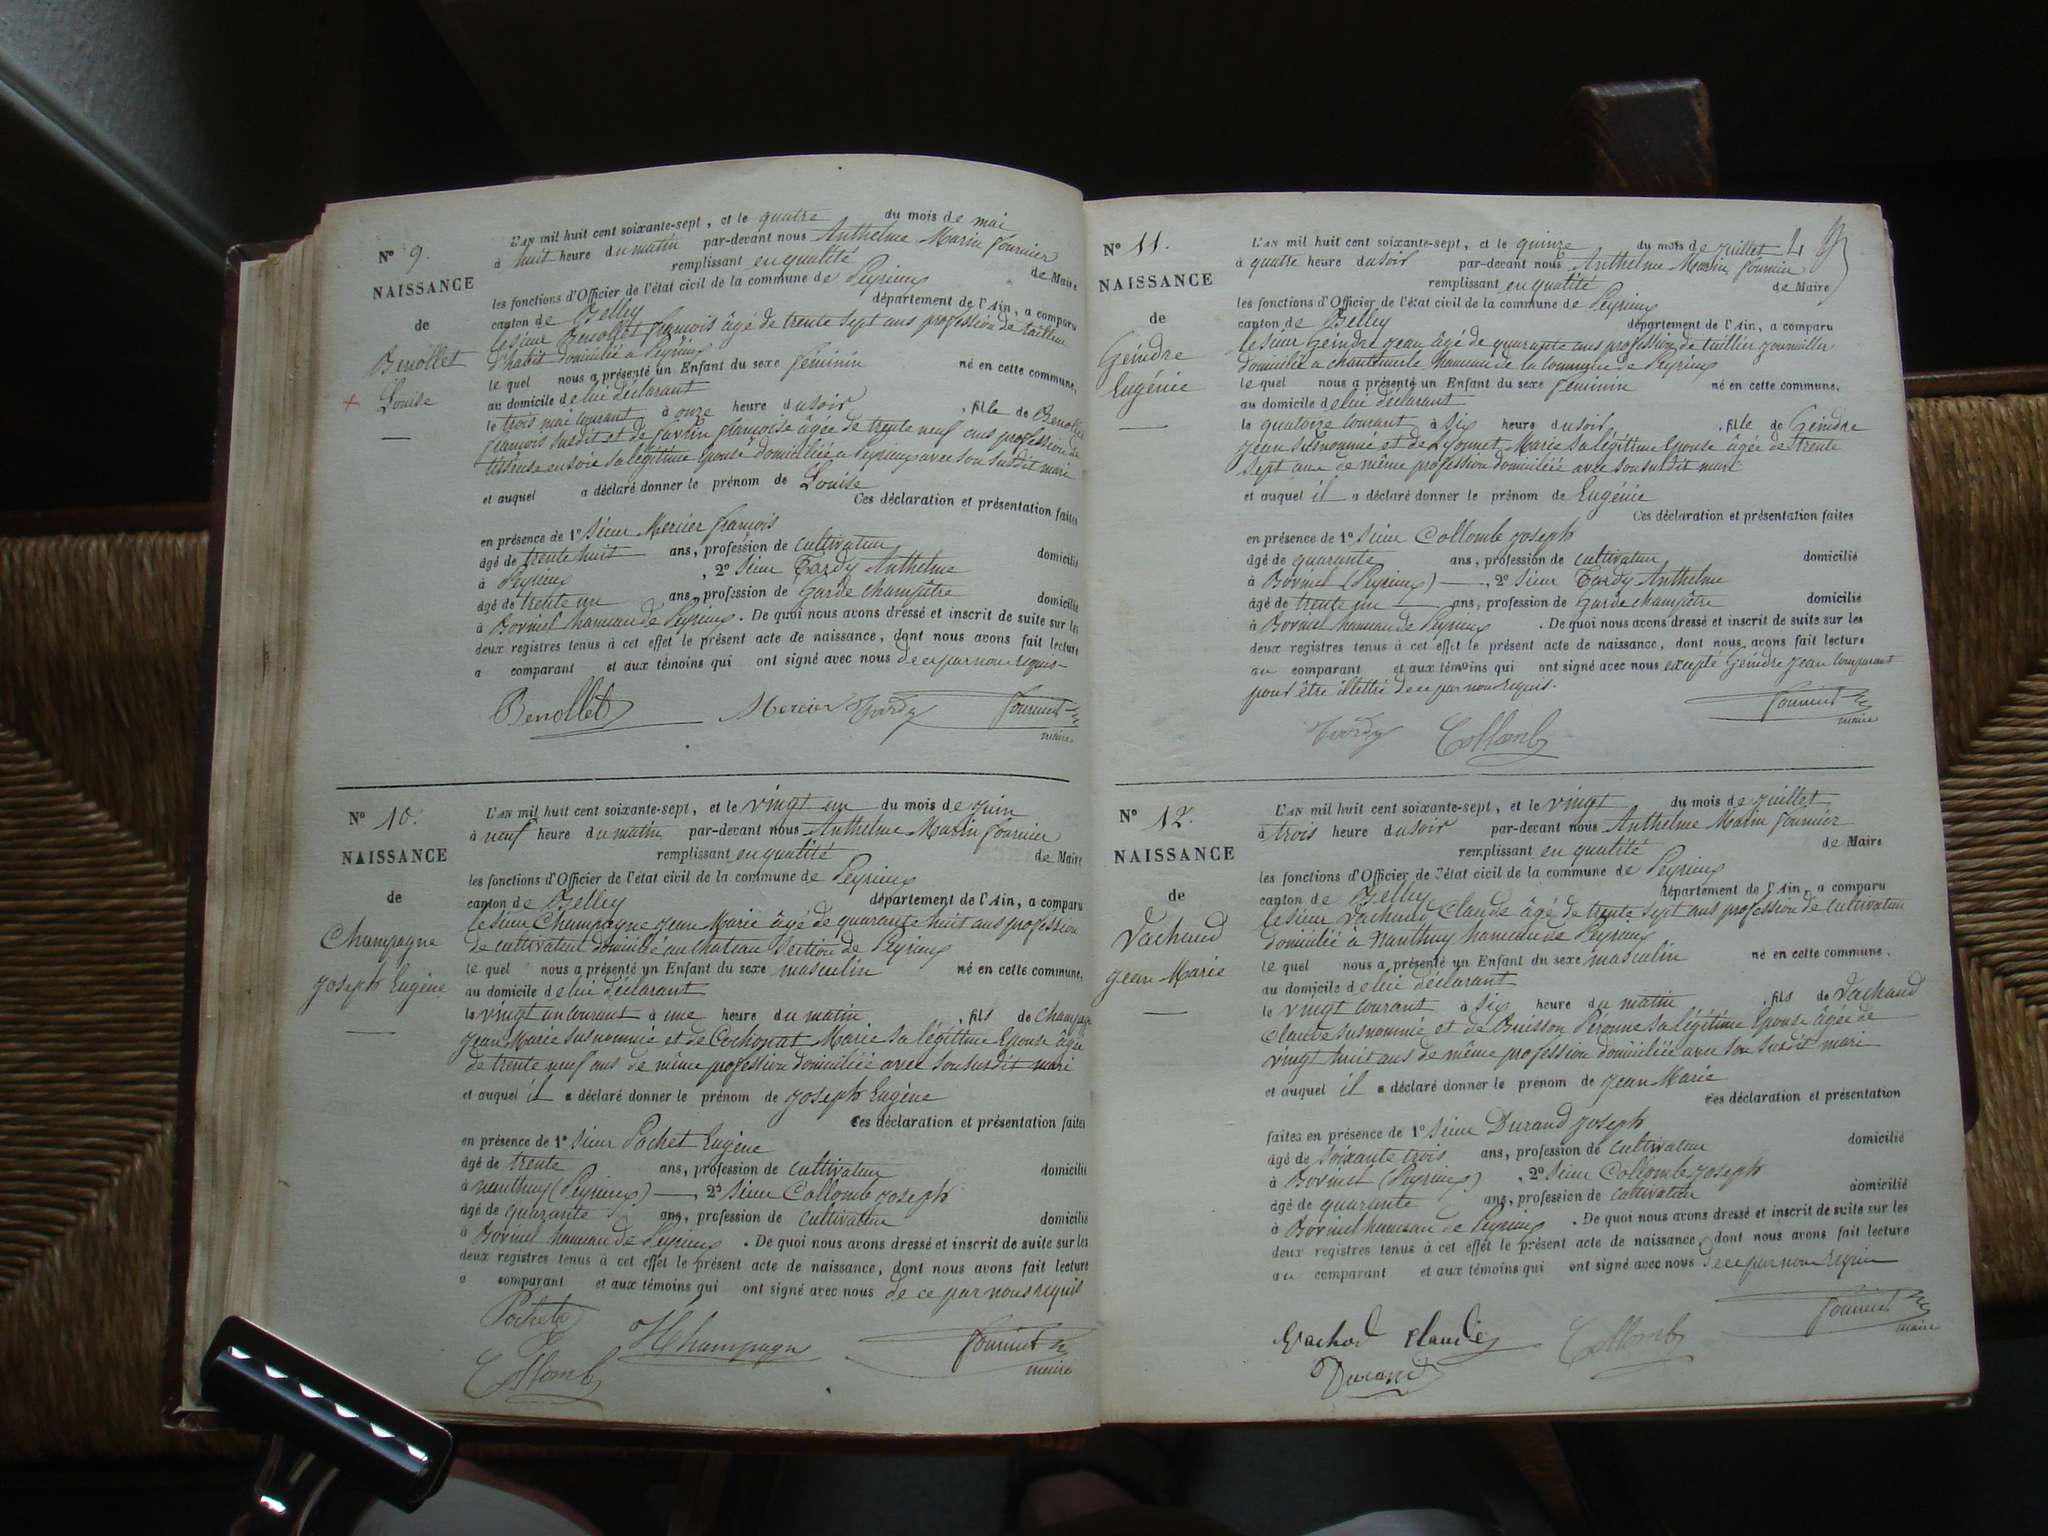 N° 9.
NAISSANCE
de
Benollet
Louise
L'AN mil huit cent soixante-sept, et le quatre du mois de mai
à huit heure du matin par-devant nous Anthelme Marin Fournier
remplissant en qualité de Maire
les fonctions d'Officier de l'état civil de la commune de Peyrieux
canton de Belley département de l'Ain, a comparu
le sieur Benollet françois âgé de trente sept ans profession de tailleur
d'habit domicilié à Peyrieux
le quel nous a présenté un Enfant du sexe féminin né en cette commune,
au domicile de lui déclarant
le trois mai courant à onze heure du soir, fille de Benollet
françois susdit et de françoise âgée de trente neuf ans profession de
tisseuse en soie sa légitime épouse domiciliée a Peyrieux avec son susdit mari
et auquel a déclaré donner le prénom de Louise
Ces déclaration et présentation faites
en présence de 1° sieur Mercier françois
âgé de trente huit ans, profession de cultivateur domicilié
à Peyrieux, 2° sieur Tardy Anthelme
âgé de trente un ans, profession de Garde champêtre domicilié
à Bovinel hameau de Peyrieux. De quoi nous avons dressé et inscrit de suite sur les
deux registres tenus à cet effet le présent acte de naissance, dont nous avons fait lecture
a comparant et aux témoins qui ont signé avec nous de ce par nous requis
Benollet Mercier Tardy Fournier
maire
N° 10.
NAISSANCE
de
Champagne
Joseph Eugène
L'AN mil huit cent soixante-sept, et le vingt un du mois de juin
à neuf heure du matin par-devant nous Anthelme Marin Fournier
remplissant en qualité de Maire
les fonctions d'Officier de l'état civil de la commune de Peyrieux
canton de Belley département de l'Ain, a comparu
le sieur Champagne Jean Marie âgé de quarante huit ans profession
de cultivateur domicilié au chateau Section de Peyrieux
le quel nous a présenté un Enfant du sexe masculin né en cette commune,
au domicile de lui déclarant
le vingt un courant à une heure du matin, fils de Champagne
Jean Marie susnommé et de Cochonat Marie sa légitime Epouse âgée
de trente neuf ans de même profession domiciliée avec son susdit mari
et auquel il a déclaré donner le prénom de Joseph Eugène
Ces déclaration et présentation faites
en présence de 1° sieur Pochet Eugène
âgé de trente ans, profession de cultivateur domicilié
à Nanthuy (Peyrieux), 2° sieur Collomb Joseph
âgé de quarante ans, profession de cultivateur domicilié
à Bovinel hameau de Peyrieux. De quoi nous avons dressé et inscrit de suite sur les
deux registres tenus à cet effet le présent acte de naissance, dont nous avons fait lecture
a comparant et aux témoins qui ont signé avec nous de ce par nous requis
Pochet
Champagne Fournier
Collomb maire
N° 11.
NAISSANCE
de
Geindre
Eugénie
L'AN mil huit cent soixante-sept, et le quinze du mois de juillet
à quatre heure du soir par-devant nous Anthelme Marin Fournier
remplissant en qualité de Maire
les fonctions d'Officier de l'état civil de la commune de Peyrieux
canton de Belley département de l'Ain, a comparu
le sieur Geindre Jean âgé de quarante ans profession de
domicilié a chantemerle hameau de la commune de Peyrieux
le quel nous a présenté un Enfant du sexe féminin né en cette commune,
au domicile de lui déclarant
le quatorze courant à six heure du soir, fille de Geindre
Jean susnommé et de Lyonnet Marie sa légitime épouse âgée de trente
sept ans de même profession domiciliée avec son susdit mari
et auquel il a déclaré donner le prénom de Eugénie
Ces déclaration et présentation faites
en présence de 1° sieur Collomb Joseph
âgé de quarante ans, profession de cultivateur domicilié
à Bovinel (Peyrieux), 2° sieur Tardy Anthelme
âgé de trente un ans, profession de Garde champêtre domicilié
à Bovinel hameau de Peyrieux. De quoi nous avons dressé et inscrit de suite sur les
deux registres tenus à cet effet le présent acte de naissance, dont nous avons fait lecture
au comparant et aux témoins qui ont signé avec nous excepté Geindre Jean comparant
pour être illettré de ce par nous requis.
Tardy Collomb Fournier
maire
N° 12.
NAISSANCE
de
Vachaud
Jean Marie
L'AN mil huit cent soixante-sept, et le vingt du mois de juillet
à trois heure du soir par-devant nous Anthelme Marin Fournier
remplissant en qualité de Maire
les fonctions d'Officier de l'état civil de la commune de Peyrieux
canton de Belley département de l'Ain, a comparu
le sieur Vachaud Claude âgé de trente sept ans profession de cultivateur
domicilié à Nanthuy hameau de Peyrieux
le quel nous a présenté un Enfant du sexe masculin né en cette commune,
au domicile de lui déclarant
le vingt courant à six heure du matin, fils de Vachaud
Claude susnommé et de Buisson Péronne sa légitime épouse âgée de
vingt huit ans de même profession domiciliée avec son susdit mari
et auquel il a déclaré donner le prénom de Jean Marie
Ces déclaration et présentation
faites en présence de 1° sieur Durand Joseph
âgé de soixante trois ans, profession de cultivateur domicilié
à Bovinel (Peyrieux), 2° sieur Collomb Joseph
âgé de quarante ans, profession de cultivateur domicilié
à Bovinel hameau de Peyrieux. De quoi nous avons dressé et inscrit de suite sur les
deux registres tenus à cet effet le présent acte de naissance, dont nous avons fait lecture
au comparant et aux témoins qui ont signé avec nous de ce par nous requis
Vachod Claude Collomb Fournier
Durand maire